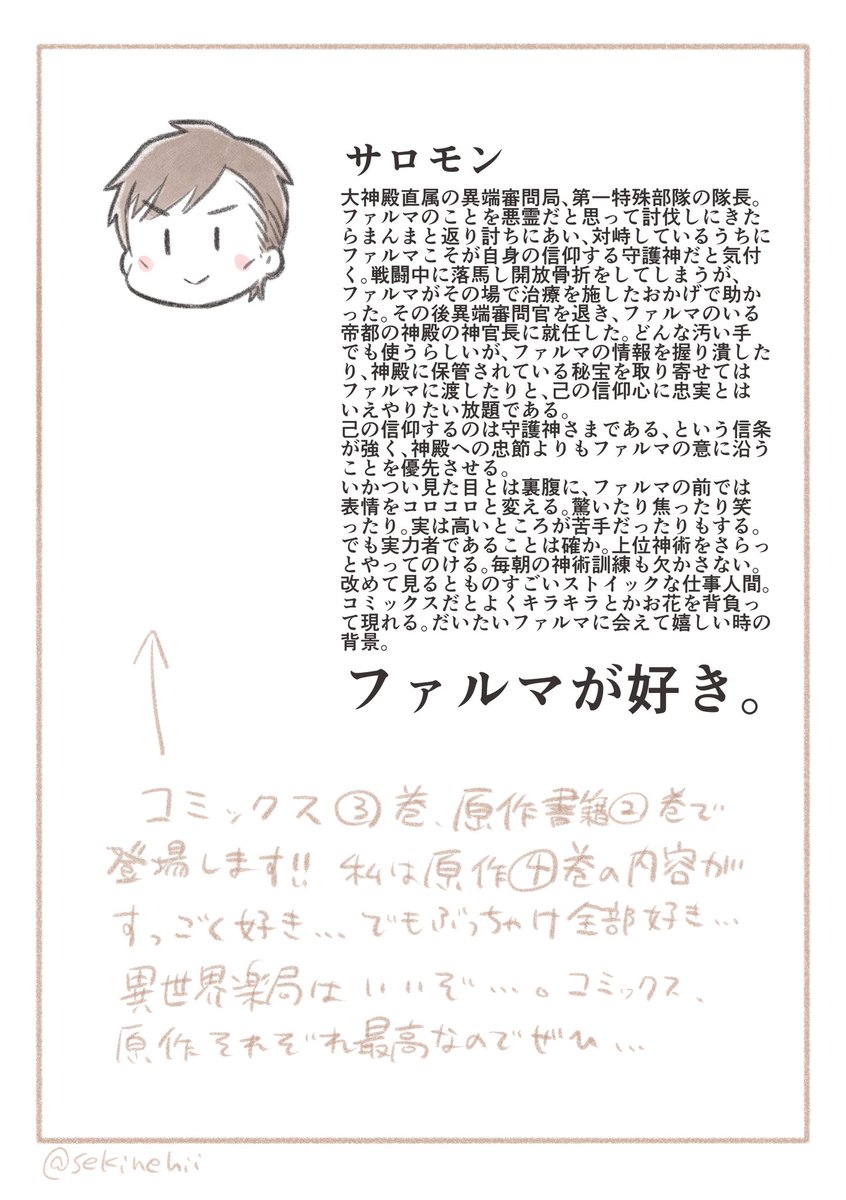 サロモン
大神殿直属の異端審問局、第一特殊部隊の隊長。
ファルマのことを悪霊だと思って討伐しにきた
らまんまと返り討ちにあい、対峙しているうちに
ファルマこそが自身の信仰する守護神だと気付
く。戦闘中に落馬し開放骨折をしてしまうが、
ファルマがその場で治療を施したおかげで助か
った。その後異端審問官を退き、ファルマのいる
帝都の神殿の神官長に就任した。どんな汚い手
でも使うらしいが、ファルマの情報を握り潰した
り、神殿に保管されている秘宝を取り寄せては
ファルマに渡したりと、己の信仰心に忠実とは
いえやりたい放題である。
己の信仰するのは守護神さまである、という信条
が強く、神殿への忠節よりもファルマの意に沿う
ことを優先させる。
いかつい見た目とは裏腹に、ファルマの前では
表情をコロコロと変える。驚いたり焦ったり笑
ったり。実は高いところが苦手だったりもする。
でも実力者であることは確か。上位神術をさらっ
とやってのける。毎朝の神術訓練も欠かさない。
改めて見るとものすごいストイックな仕事人間。
コミックスだとよくキラキラとかお花を背負っ
て現れる。だいたいファルマに会えて嬉しい時の
背景。
ファルマが好き。
コミックス③巻、原作書籍②巻で
登場します!! 私は原作④巻の内容が
すっごく好き… でもぶっちゃけ全部好き…
異世界薬局はいいぞ…。コミックス、
原作それぞれ最高なのでぜひ…
@sekinehii